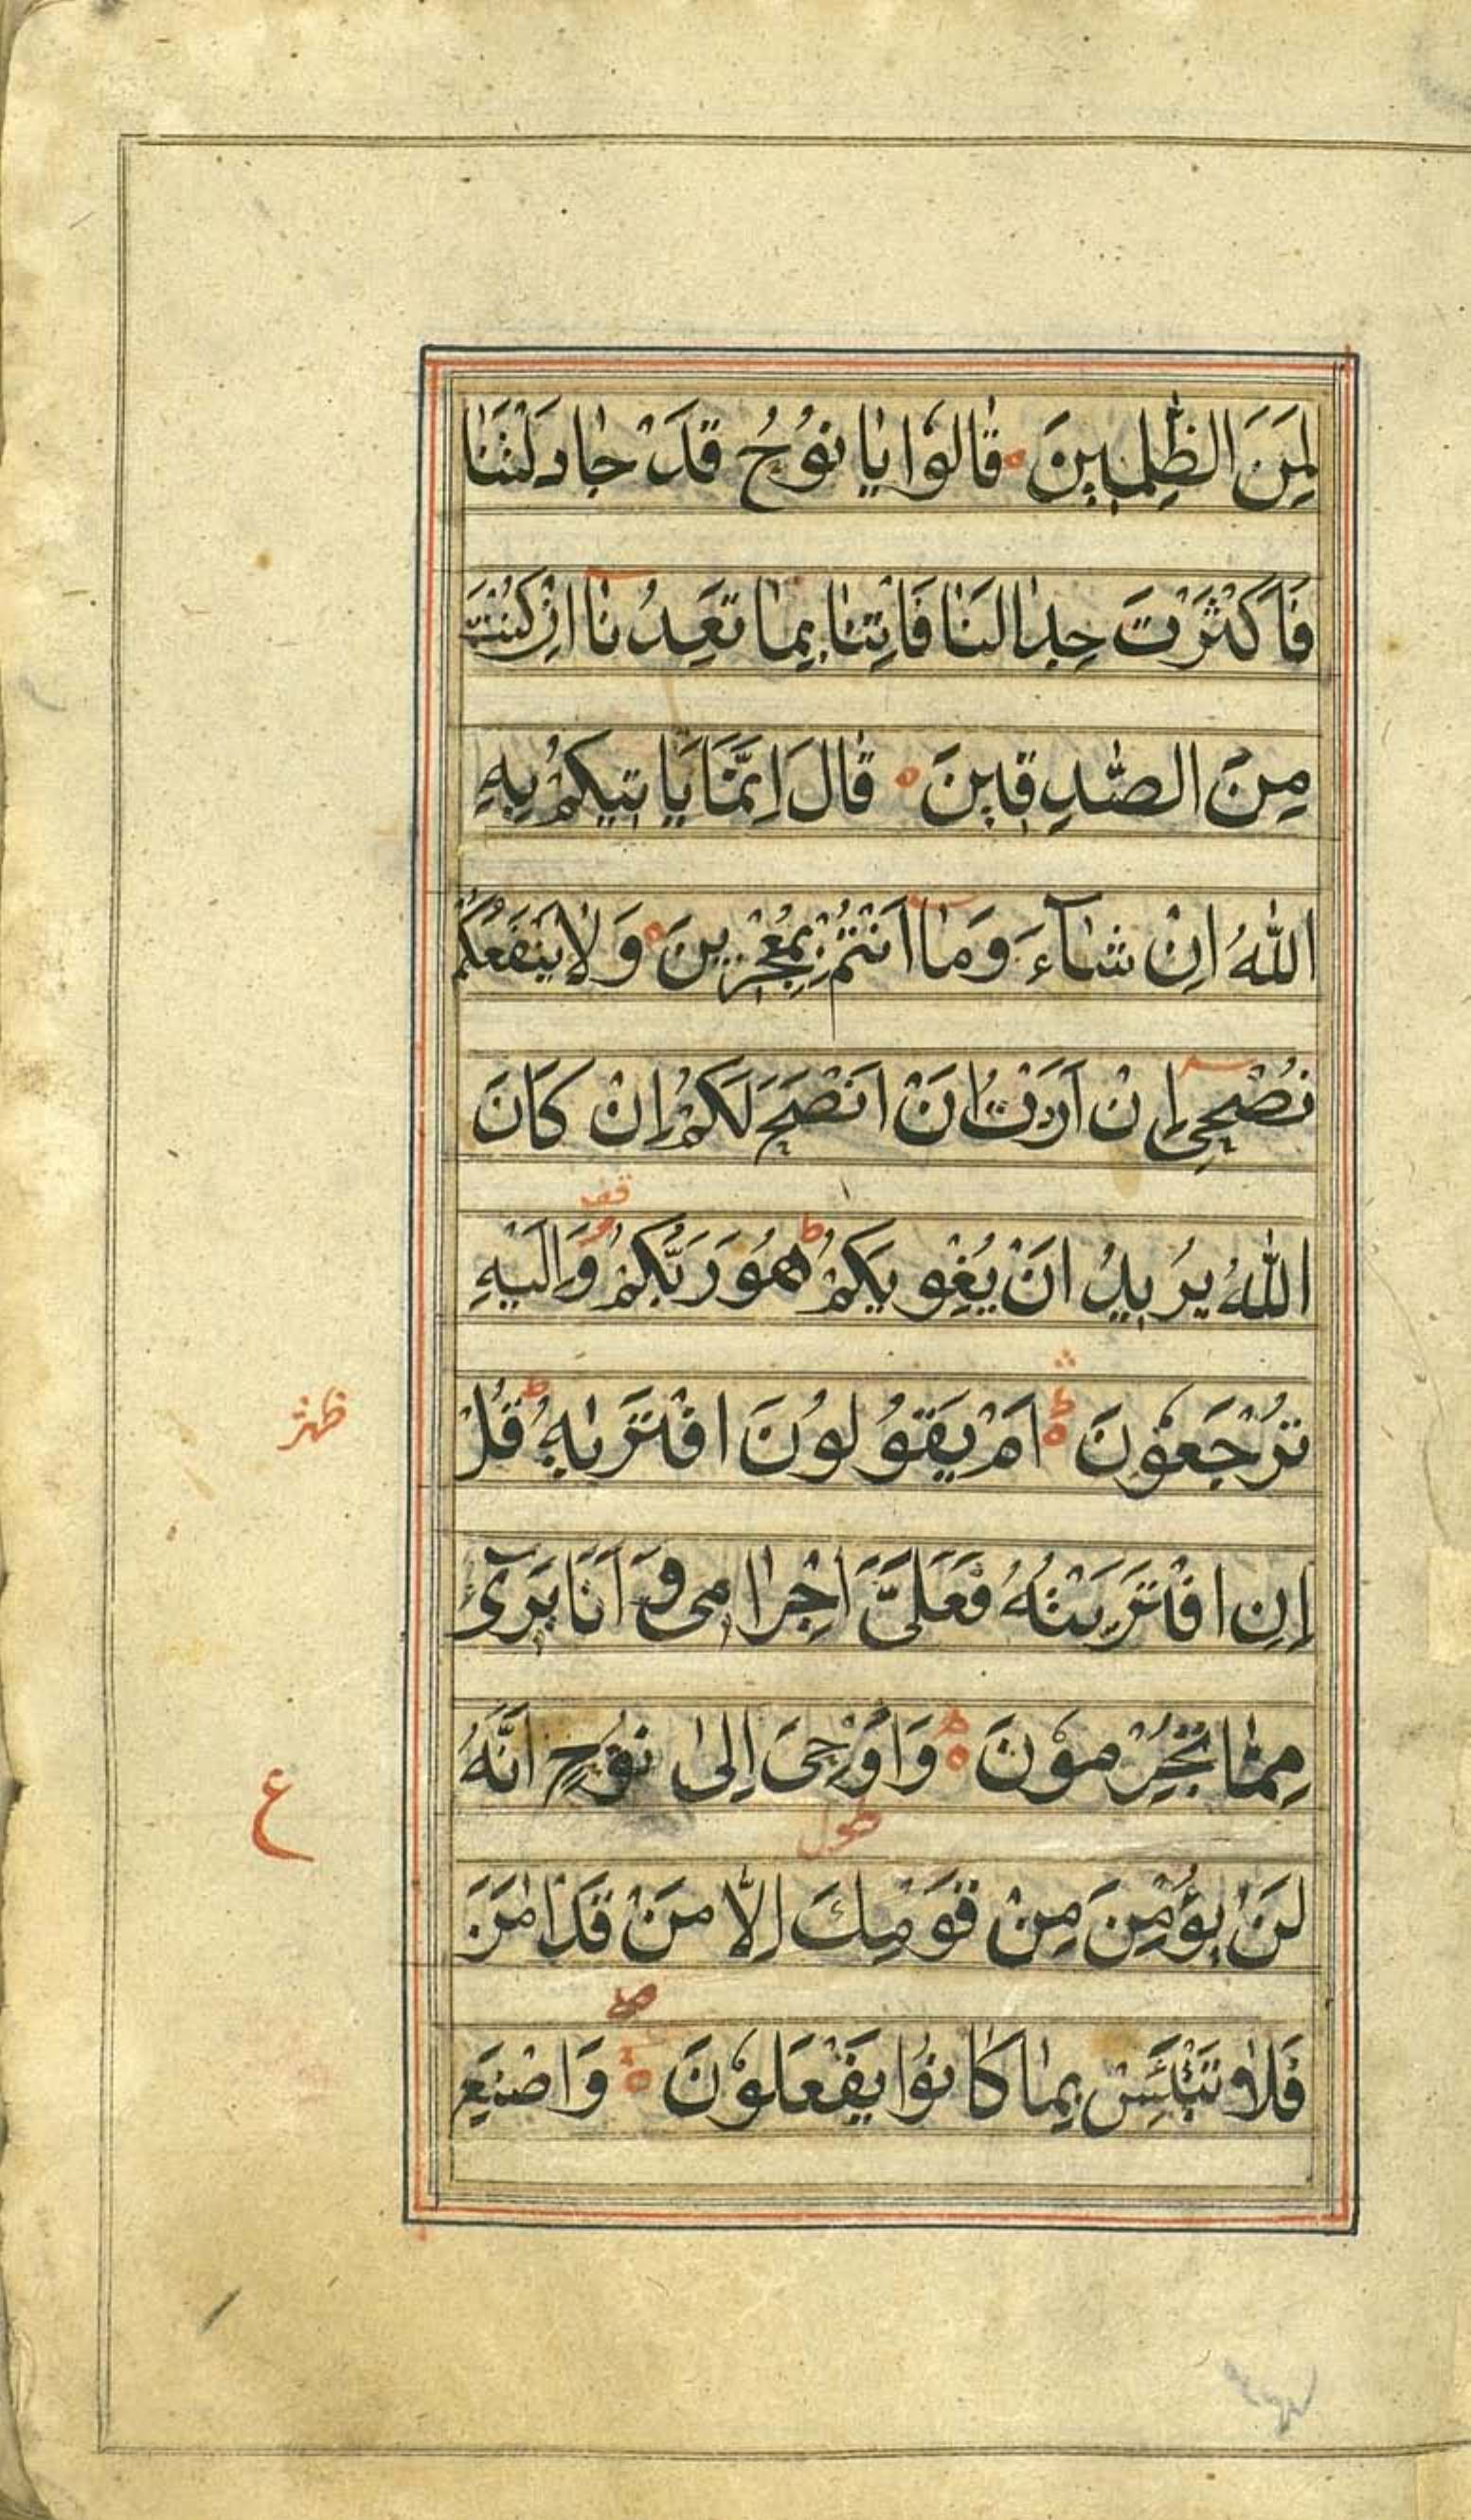 لَمِنَ الظّٰلِمِينَ ه قَالُوا يَا نُوحُ قَدْ جَادَلْتَنَا
فَاَكْثَرْتَ جِدَالَنَا فَاْتِنَا بِمَا تَعِدُنَا اِنْ كُنْتَ
مِنَ الصّٰدِقِينَ ه قَالَ اِنَّمَا يَاْتِيكُمْ بِهِ
اللّٰهُ اِنْ شَآءَ وَمَا اَنْتُمْ بِمُعْجِزِينَ ه وَلَا يَنْفَعُكُمْ
نُصْحِي اِنْ اَرَدْتُ اَنْ اَنْصَحَ لَكُمْ اِنْ كَانَ
قف
اللّٰهُ يُرِيدُ اَنْ يُغْوِيَكُمْ ط هُوَ رَبُّكُمْ وَاِلَيْهِ
تُرْجَعُونَ ه ط اَمْ يَقُولُونَ افْتَرٰىهُ ط قُلْ
اِنِ افْتَرَيْتُهُ فَعَلَيَّ اِجْرَامِي وَ اَنَا بَرِيٓءٌ
مِمَّا تُجْرِمُونَ ه وَاُوْحِيَ اِلٰى نُوحٍ اَنَّهُ
ع
لَنْ يُؤْمِنَ مِنْ قَوْمِكَ اِلَّا مَنْ قَدْ اٰمَنَ
فَلَا تَبْتَئِسْ بِمَا كَانُوا يَفْعَلُوْنَ ه وَاصْنَعِ